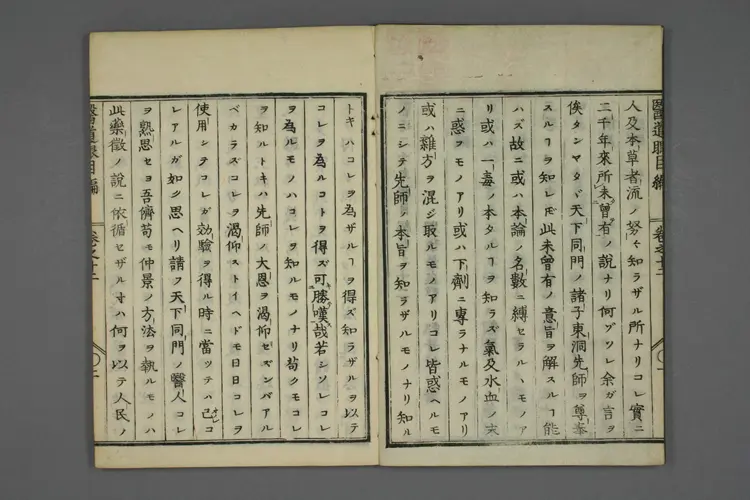 人及本草者流ノ努々知ラザル所ナリコレ實ニ
二千年來所未曾有ノ說ナリ何ゾソレ余ガ言ヲ
俟タンヤタヾ天下同門ノ諸子東洞先師ヲ尊奉
スルヿヲ知レ𪜈此未曾有ノ意旨ヲ解スルヿ能
ハズ故ニ或ハ本論ノ名數ニ縛セラルヽモノア
リ或ハ一毒ノ本タルヿヲ知ラズ氣及水血ノ末
ニ惑フモノアリ或ハ下劑ニ專ラナルモノアリ
或ハ雜方ヲ混ジ取ルモノアリコレ皆惑ヘルモ
ノニシテ先師ノ本旨ヲ知ラザルモノナリ知ル
醫道眼目編 卷之十二
トキハコレヲ為ザルヿヲ得ズ知ラザルヲ以テ
コレヲ為ルコトヲ得ズ可勝嘆哉若シソレコレ
ヲ為ルモノハコレヲ知ルモノナリ苟クモコレ
ヲ知ルトキハ先師ノ大恩ヲ渴仰セズンバアル
ベカラズコレヲ渴仰ストイヘドモ日日コレヲ
使用シテコレガ效驗ヲ得ル時ニ當ツテハ己レコ
レアルガ如ク思ヘリ請フ天下同門ノ醫人コレ
ヲ熟思セヨ吾儕苟モ仲景ノ方法ヲ執ルモノハ
此藥徵ノ說ニ依循セザルヿハ何ヲ以テ人民ノ
醫道眼目編 卷之十二